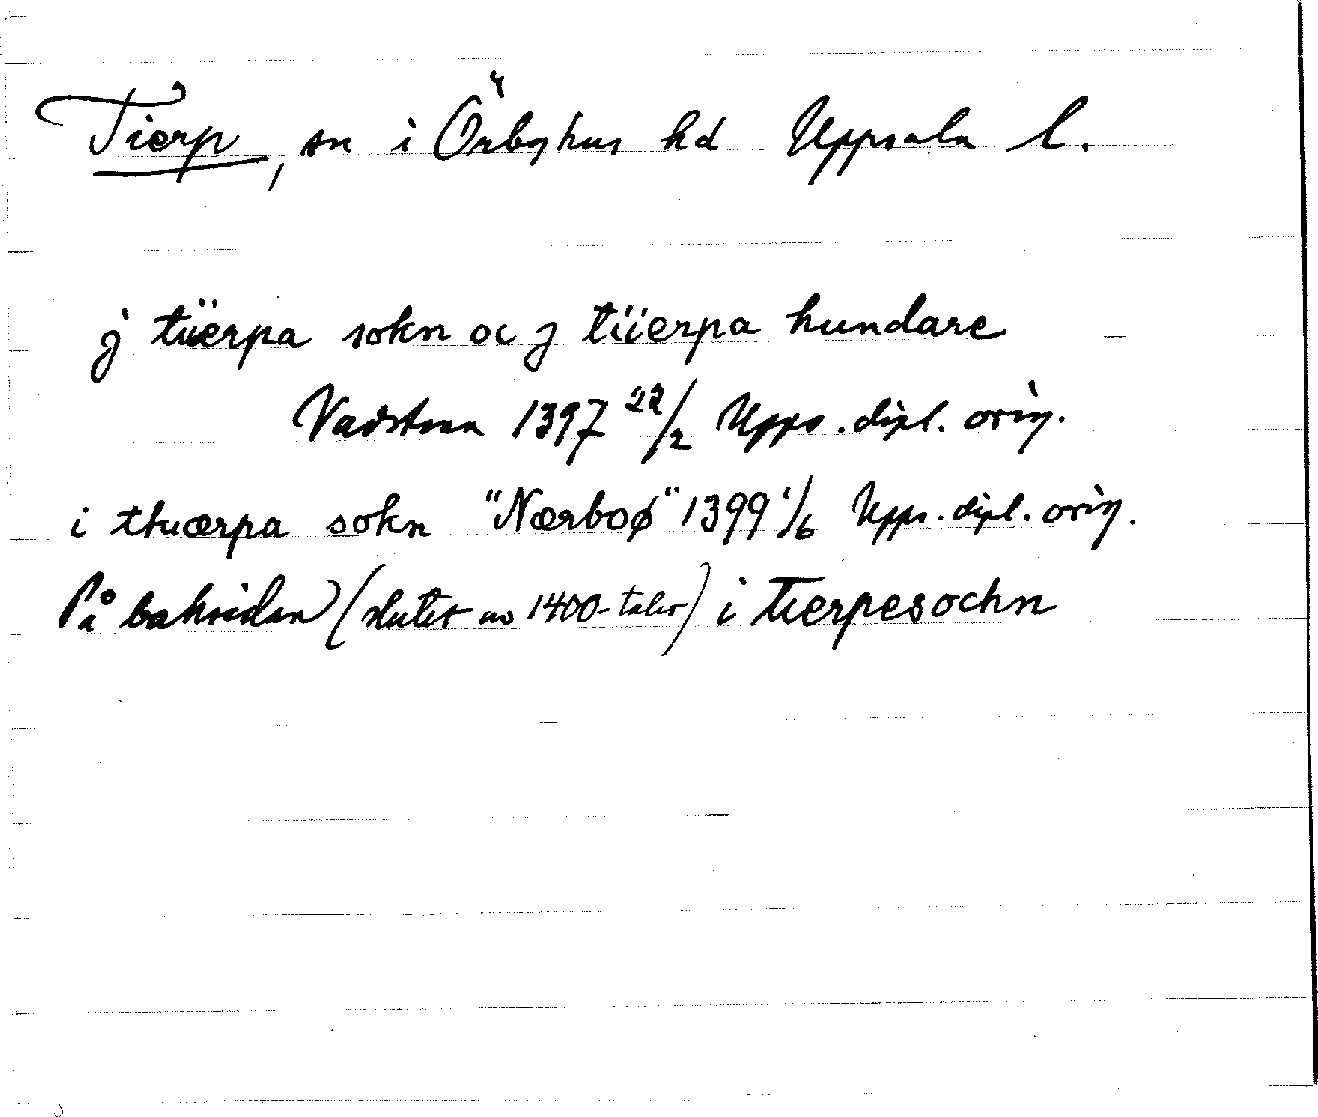 Tierp, sn i Örbyhus hd Uppsala l.
j tiierpa sokn oc j tiierpa hundare
Vadstena 1397 22/2 Upps. dipl. orig.
i thiærpa sokn "Nærboø" 1399 1/6 Upps. dipl. orig.
På baksidan (slutet av 1400-talet) i tierpesochn